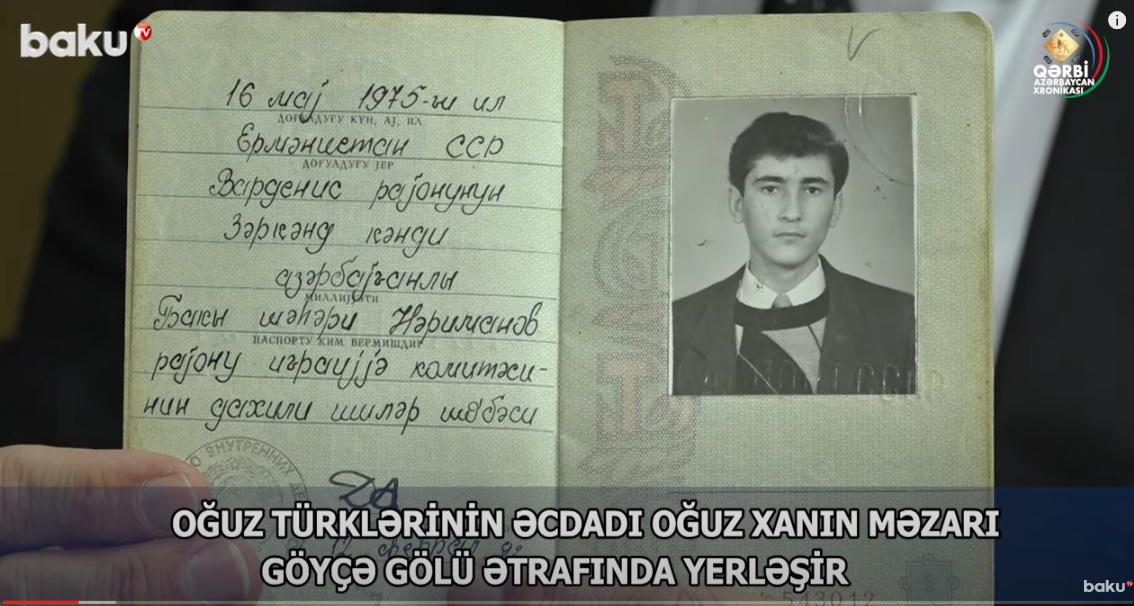 baku TV
QƏRBİ
AZƏRBAYCAN
XRONİKASI
16 мај 1975-ҹи ил
ДОҒУЛДУҒУ КҮН, АЈ, ИЛ
Ермәнистан ССР
ДОҒУЛДУҒУ ЈЕР
Варденис рајонунун
Зәркәнд кәнди
азәрбајҹанлы
МИЛЛИЈЈӘТИ
Бакы шәһәри Нәриманов
ПАСПОРТУ КИМ ВЕРМИШДИР
рајону иҹраијјә комитәси-
нин дахили ишләр шө'бәси
ВНУТРЕННИХ
OĞUZ TÜRKLƏRİNİN ƏCDADI OĞUZ XANIN MƏZARI
GÖYÇƏ GÖLÜ ƏTRAFINDA YERLƏŞİR
543012
baku TV